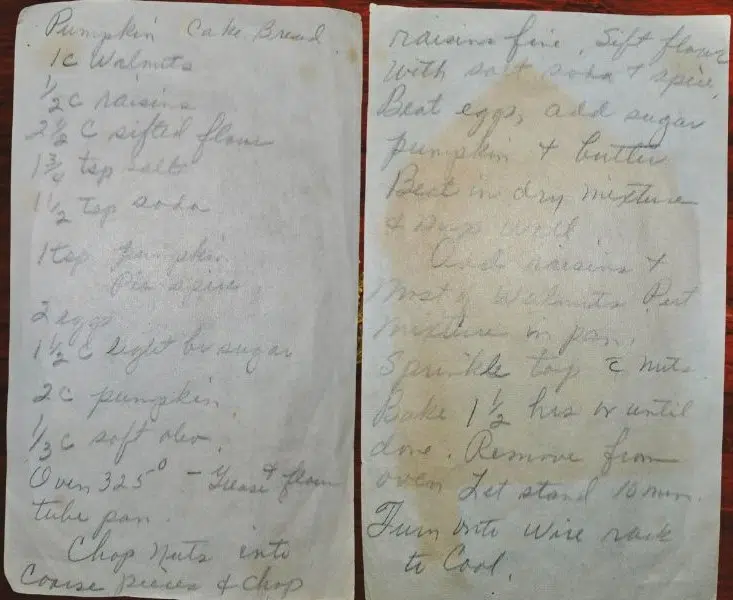 Pumpkin Cake Bread
1c Walnuts
1/2c raisins
2 1/2 c sifted flour
1 3/4 tsp salt
1 1/2 tsp soda
1 tsp pumpkin
Pie spice
2 eggs
1 1/2 c light br sugar
2c pumpkin
1/3 c soft oleo
Oven 325° - Grease & flour
tube pan.
Chop Nuts into
Coarse pieces & chop
raisins fine. Sift flour
with salt soda & spice.
Beat eggs, add sugar
pumpkin & butter
Beat in dry mixture
&
Add raisins &
Most of Walnuts Put
mixture in pan.
Sprinkle top c nuts.
Bake 1 1/2 hrs or until
done. Remove from
oven Let stand 10 min.
Turn onto wire rack
to Cool.